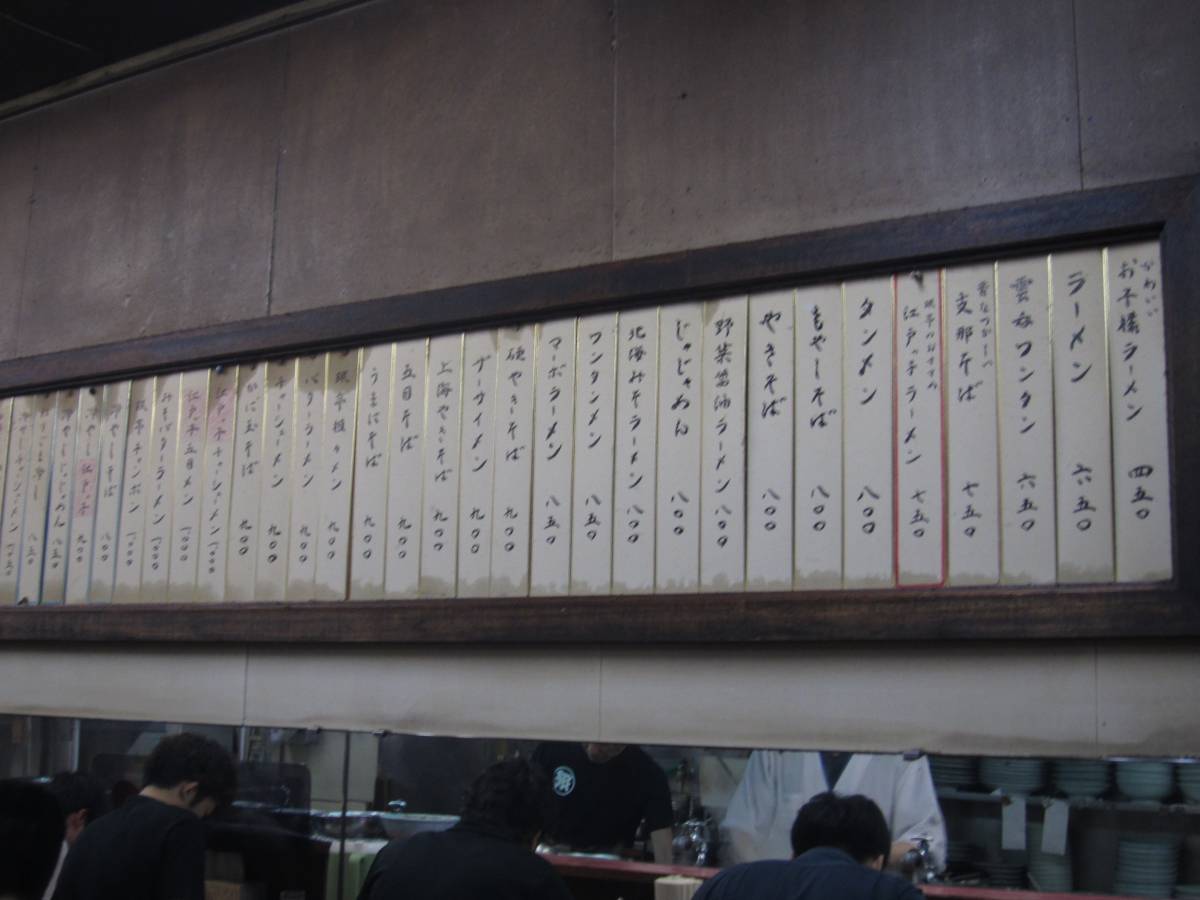 かわいい
お子様ラーメン 四五〇
ラーメン 六五〇
雲呑ワンタン 六五〇
昔なつかしべ
支那そば 七五〇
江戸っ子ラーメン 七五〇
タンメン 八〇〇
もやしそば 八〇〇
やきそば 八〇〇
野菜醤油ラーメン 八〇〇
じゃじゃめん 八〇〇
北海みそラーメン 八〇〇
ワンタンメン 八五〇
マーボラーメン 八五〇
硬やきそば 九〇〇
ザーサイメン 九〇〇
上海やきそば 九〇〇
五目そば 九〇〇
うまにそば 九〇〇
メン 九〇〇
バターラーメン 九〇〇
チャーシューメン 九〇〇
かに玉そば 九〇〇
江戸っ子チャーシューメン 一〇〇〇
江戸っ子五目メン 一〇〇〇
みそバターラーメン 一〇〇〇
チャンポン 一〇〇〇
冷しそば 八〇〇
冷し江戸っ子 九〇〇
冷しじゃじゃめん 八五〇
八五〇
冷しチャーシューメン 一〇五〇